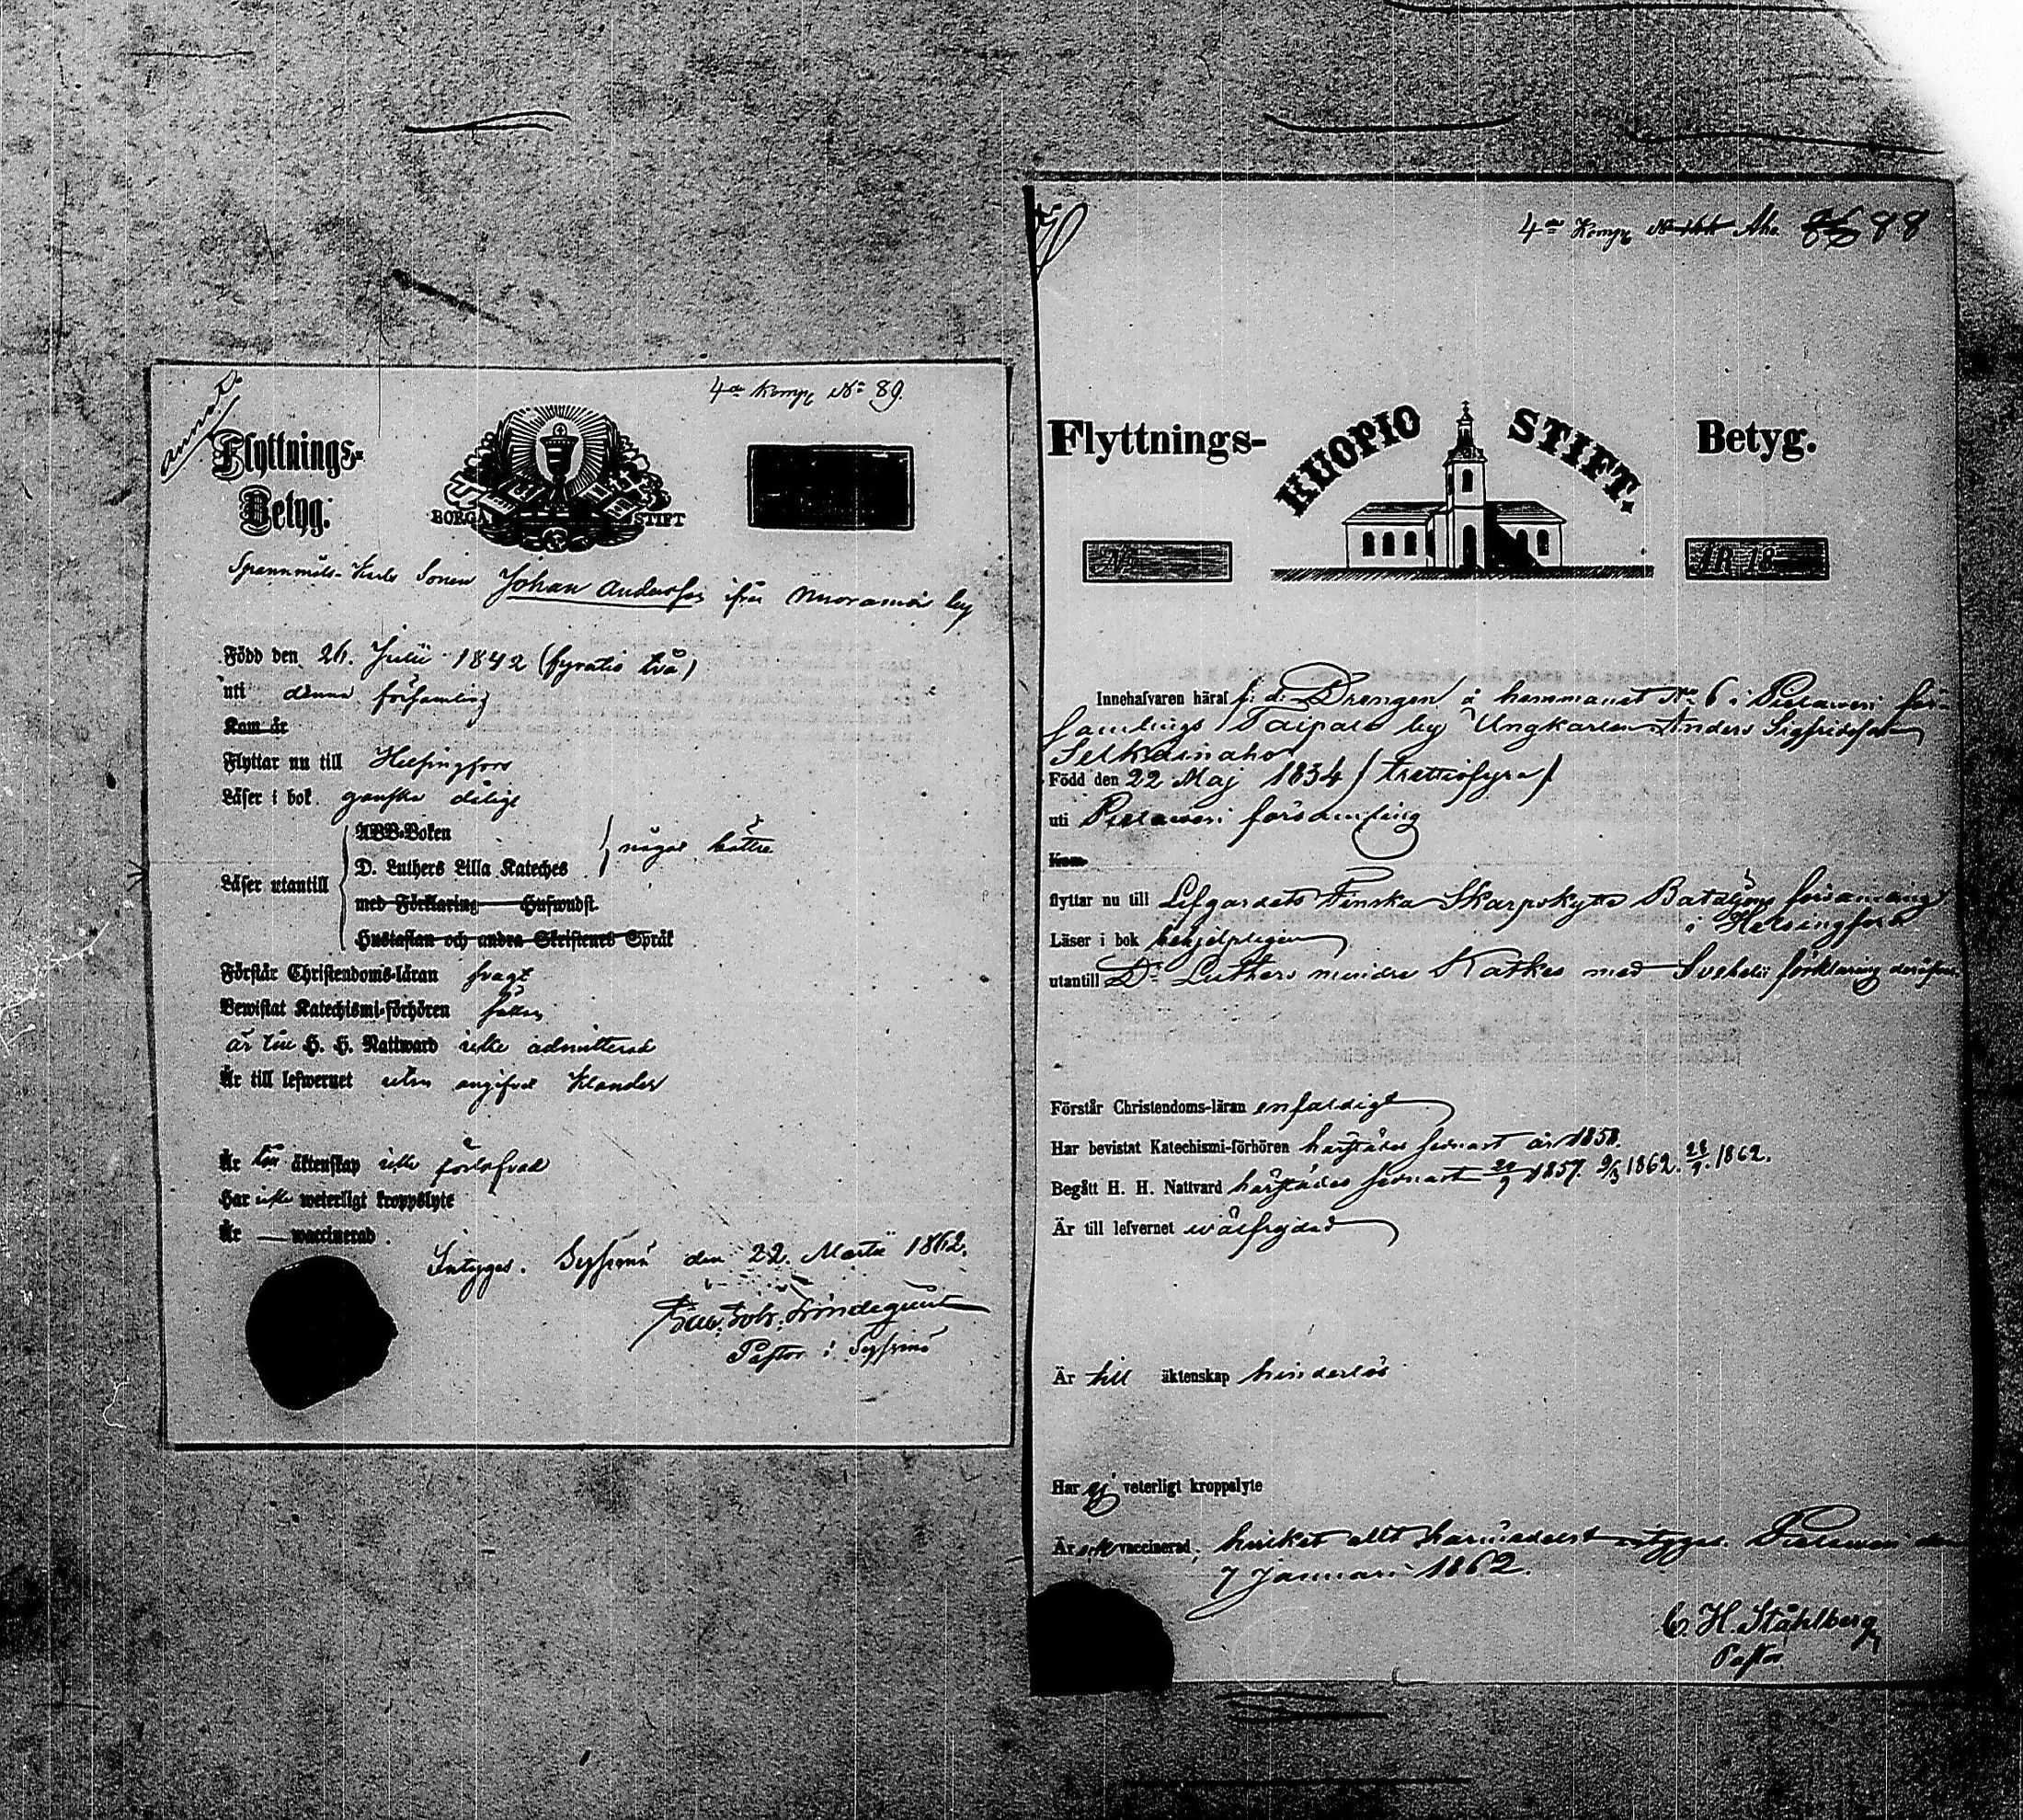 4de Komp. No 89.
Flyttnings-
Betyg.
BORGÅ STIFT
Spannmåls-Karls Sonen Johan Andersson ifrån Nuoramois by
Född den 26. Julii 1842 (fyratio två)
uti denna församling
Kom år
Flyttar nu till Helsingfors
Läser i bok ganska dåligt
ABB-Boken
D. Luthers Lilla Kateches
något bättre
Läser utantill
med Förklaring Hufwudst.
Hustaflan och andra Skriftenes Språk
Förstår Christendoms-läran svagt
Bewistat Katechismi-förhören
är till H. H. Nattward icke admitterad
Är till lefwernet utan angifvet klander
Är till äktenskap icke förlofvad
Har icke weterligt kroppslyte
Är — waccinerad.
Intygas. Sysmä den 22. Martii 1862.
Pastor i Sysmä
4de Komp. 88
Flyttnings- KUOPIO STIFT. Betyg.
No
ÅR 18
Innehafvaren häraf f. d. Drengen å hemmanet No 6 i Pielavesi för-
samlings Taipale by Ungkarlen Anders Sigfridsson
Selkäinaho
Född den 22 Maj 1834 / trettiofyra /
uti Pielavesi församling
Kom
flyttar nu till Lifgardets Finska Skarpskytte Bataljons församling
i Helsingfors
Läser i bok behjelpligen
utantill Dr Luthers mindre Katkes med Svebelii förklaring deröfver
Förstår Christendoms-läran enfaldigt
Har bevistat Katechismi-förhören härstädes senast år 1858.
Begått H. H. Nattvard härstädes senast 1857. 9/3 1862. 1862.
Är till lefvernet wälfrejdad
Är till äktenskap hinderlös
Har ej veterligt kroppslyte
Är vaccinerad; hvilket allt harmedelst intygas. Pielavesi den
7 Januari 1862.
C. H. Ståhlberg
Pastor